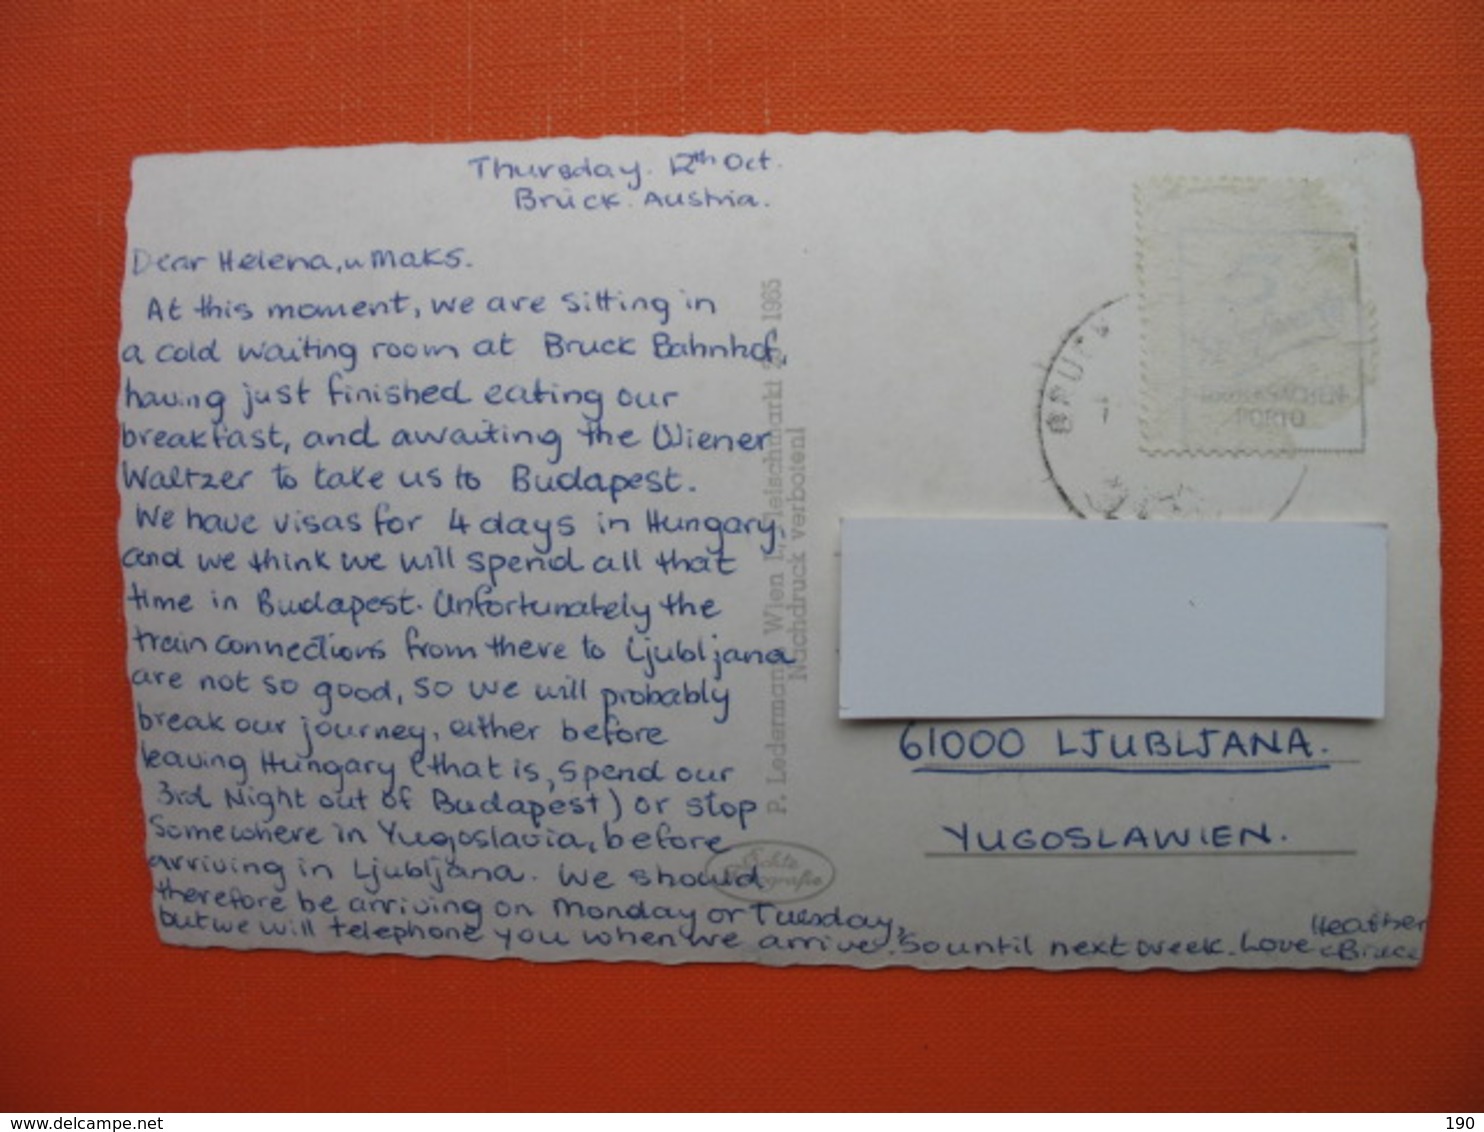 Thursday. 12th Oct.
Bruck. Austria.
Dear Helena, u Maks.
At this moment, we are sitting in
a cold waiting room at Bruck Bahnhof,
having just finished eating our
breakfast, and awaiting the Wiener
Waltzer to take us to Budapest.
We have visas for 4 days in Hungary,
and we think we will spend all that
time in Budapest. Unfortunately the
train connections from there to Ljubljana
are not so good, so we will probably
break our journey, either before
leaving Hungary (that is, spend our
3rd Night out of Budapest) or stop
Somewhere in Yugoslavia, before
arriving in Ljubljana. We should
therefore be arriving on Monday or Tuesday,
but we will telephone you when we arrive. So until next week. Love Heather
& Bruce
P. Ledermann, Wien I., Fleischmarkt 1965
Nachdruck verboten!
Echte
Fotografie
BRUCK
5
PORTO
61000 LJUBLJANA.
YUGOSLAWIEN.
www.delcampe.net
enamelmania
190